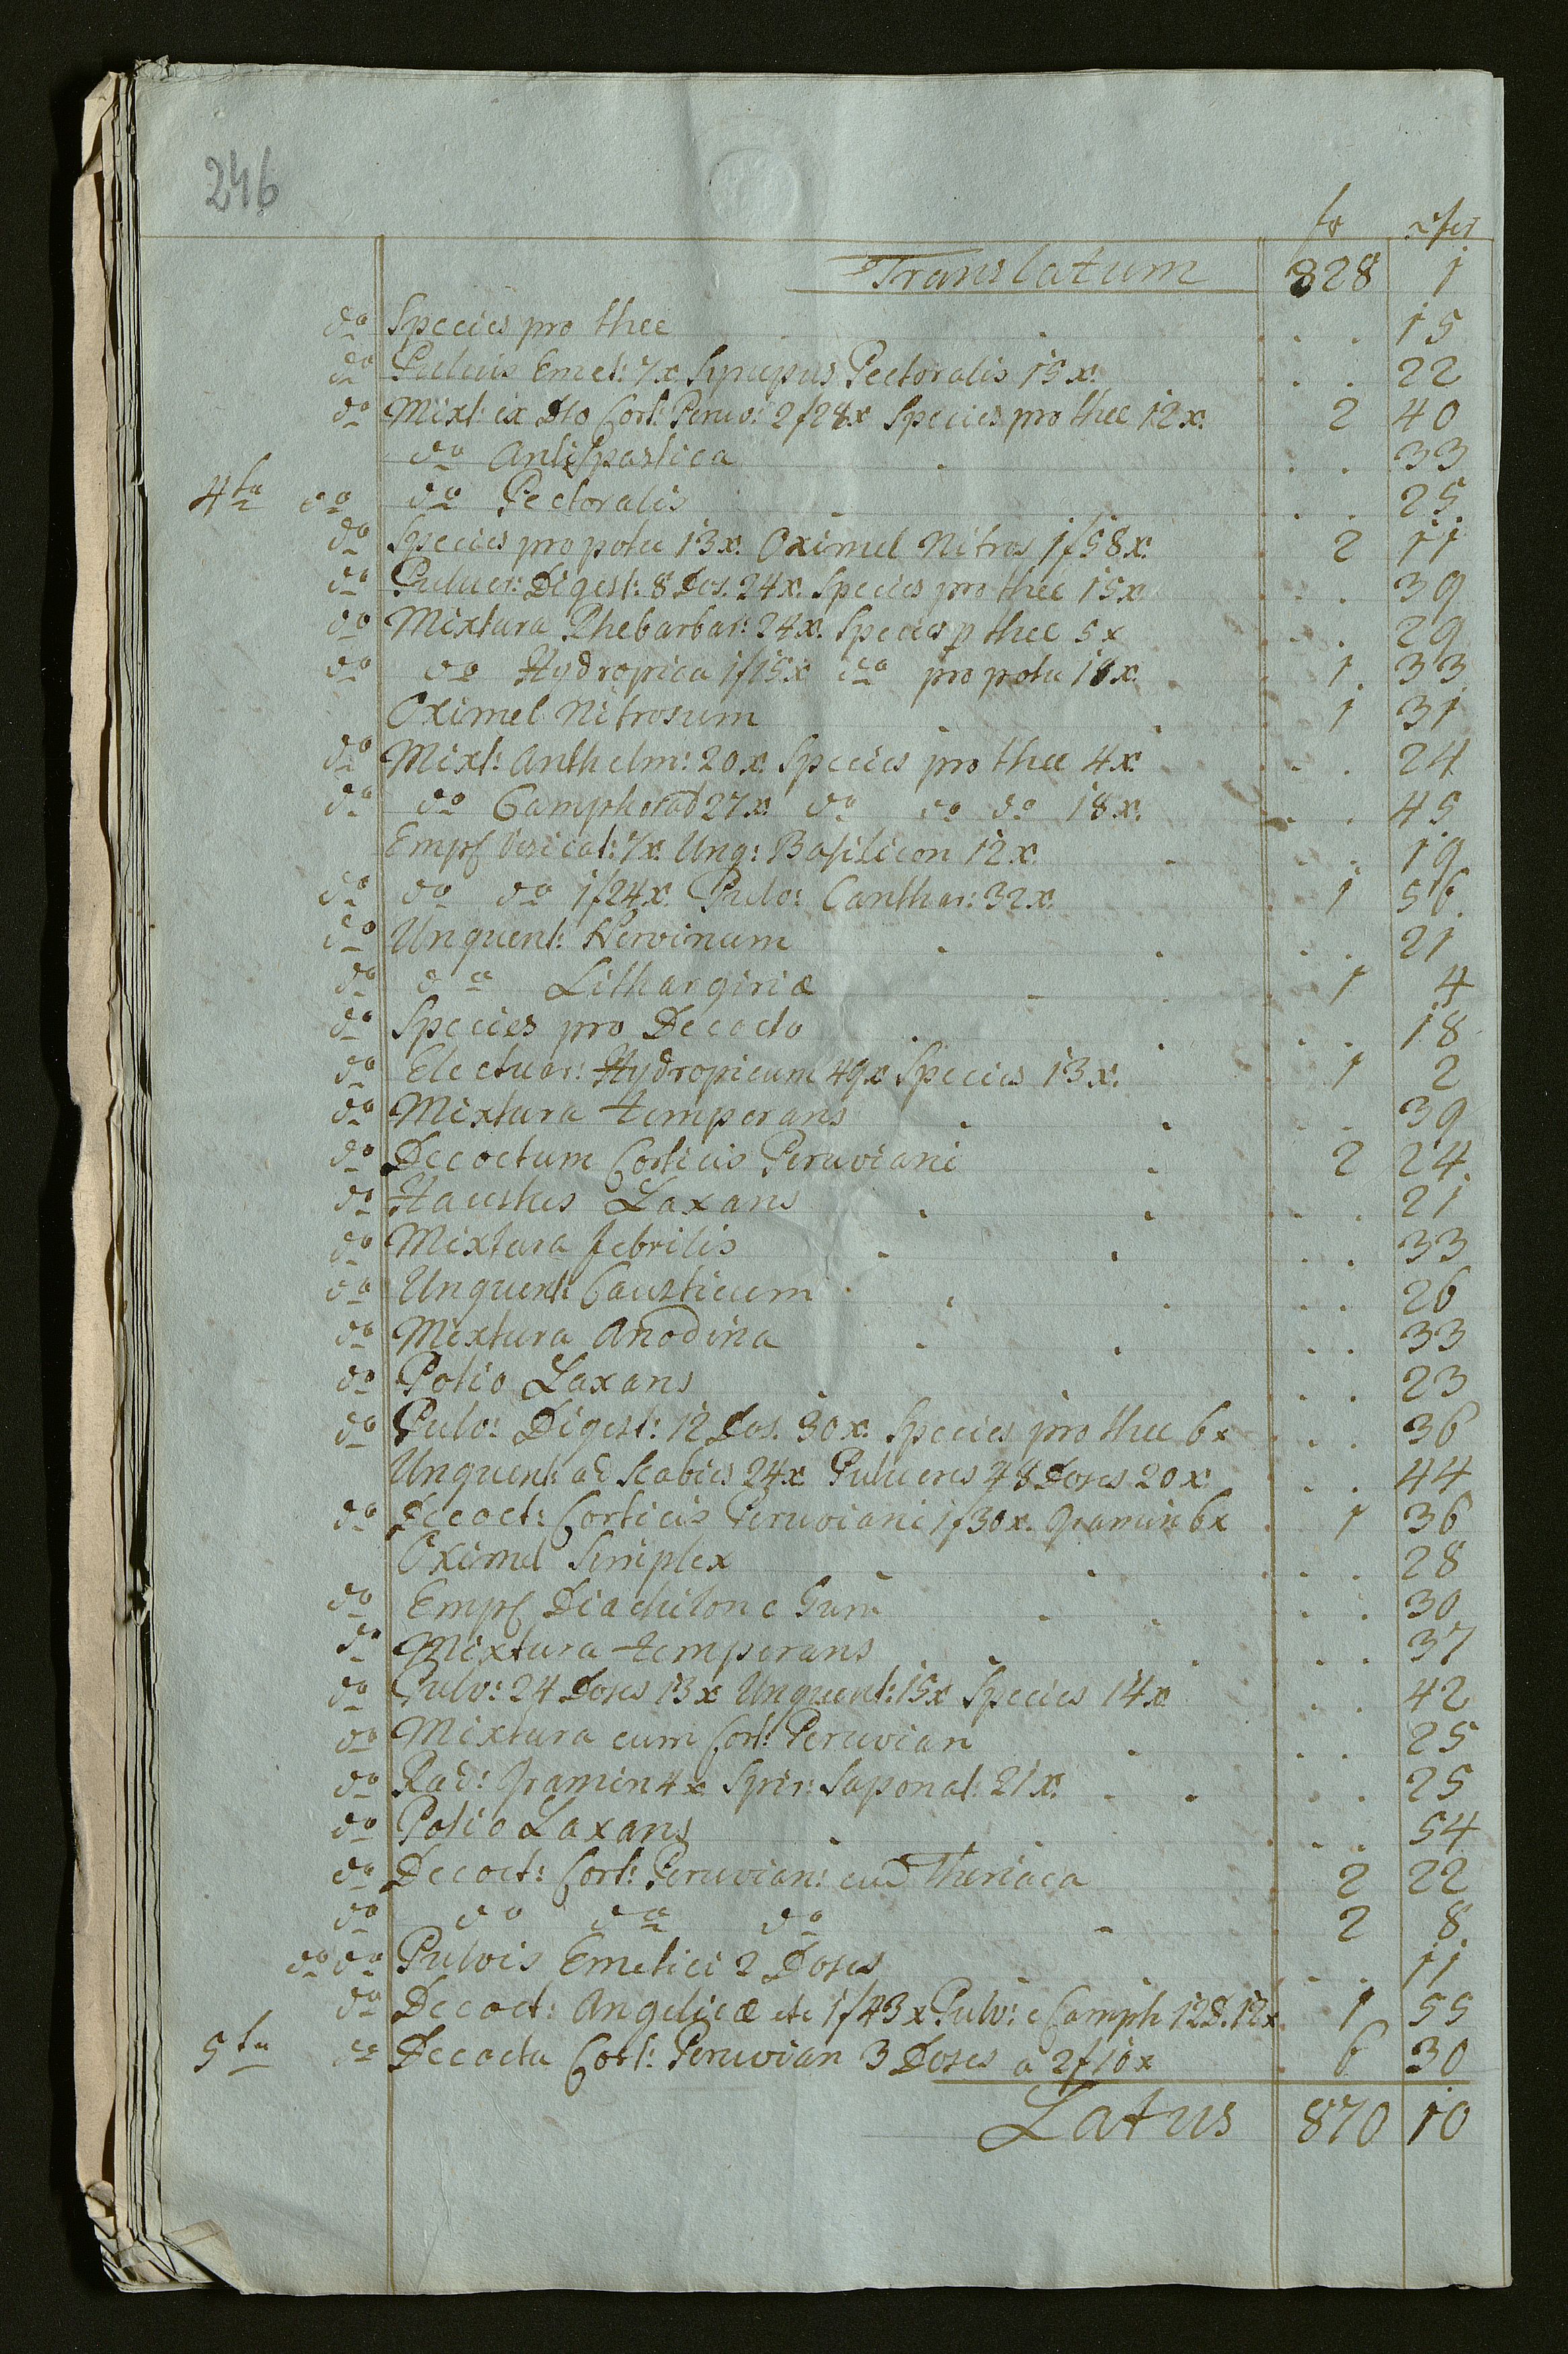 246
fr xfer
Translatum 828 1
do Species pro thee . . . 15
do Pulvis Emet: 7x. Syrupus Pectoralis 15x. . . 22
do Mixt: ex Dto Cort: Peruv: 2f28x Species pro thee 12x. 2 40
do Antispastica . . . 33
4ta do do Pectoralis . . . 25
do Species pro potu 13x. Oximel Nitros 1f58x. 2 11
do Pulver: Digest: 8 Dos. 24x. Species pro thee 15x . . 39
do Mixtura Rhebarbar: 24x. Species p thee 5x . . 29
do do Hydropica 1f15x do pro potu 18x. 1 33
Oximel Nitrosum . . 1 31
do Mixt: Anthelm: 20x. Species pro thee 4x. . . 24
do do Camphorad 27x. do do do 18x. . . 45
Empl Vesicat: 7x. Ung: Basilicon 12x. . . 19
do do do 1f24x. Pulv: Canthar: 32x. 1 56
do Unguent: Nervinum . . . 21
do do Lithargiriæ . . 1 4
do Species pro Decocto . . . 18
do Electuar: Hydropicum 49x Species 13x. 1 2
do Mixtura temperans . . . 39
do Decoctum Corticis Peruviani . 2 24
do Haustus Laxans . . . 21
do Mixtura febrilis . . . 33
do Unguent: Causticum . . . 26
do Mixtura Anodina . . . 33
do Potio Laxans . . . 23
do Pulv: Digest: 12 Dos. 30x. Species pro thee 6x . . 36
Unguent: ad Scabies 24x Pulveres 48 Doses 20x . . 44
do Decoct: Corticis Peruviani 1f30x. Gramin 6x 1 36
Oximel Simplex . . . 28
do Empl Diachilon c Gum . . . 30
do Mixtura temperans . . . 37
do Pulv: 24 Doses 13x Unguent: 15x Species 14x . . 42
do Mixtura cum Cort: Peruvian . . . 25
do Rad: Gramin 4x Spir: Saponat: 21x. . . 25
do Potio Laxans . . . 54
do Decoct: Cort: Peruvian: cum Theriaca 2 22
do do do do . 2 8
do do Pulvis Emetici 2 Doses . . 11
do Decoct: Angelicæ etc 1f43x Pulv: c Camph 12D. 12x 1 55
5ta do Decocta Cort: Peruvian 3 Doses a 2f10x . 6 30
Latus 870 10